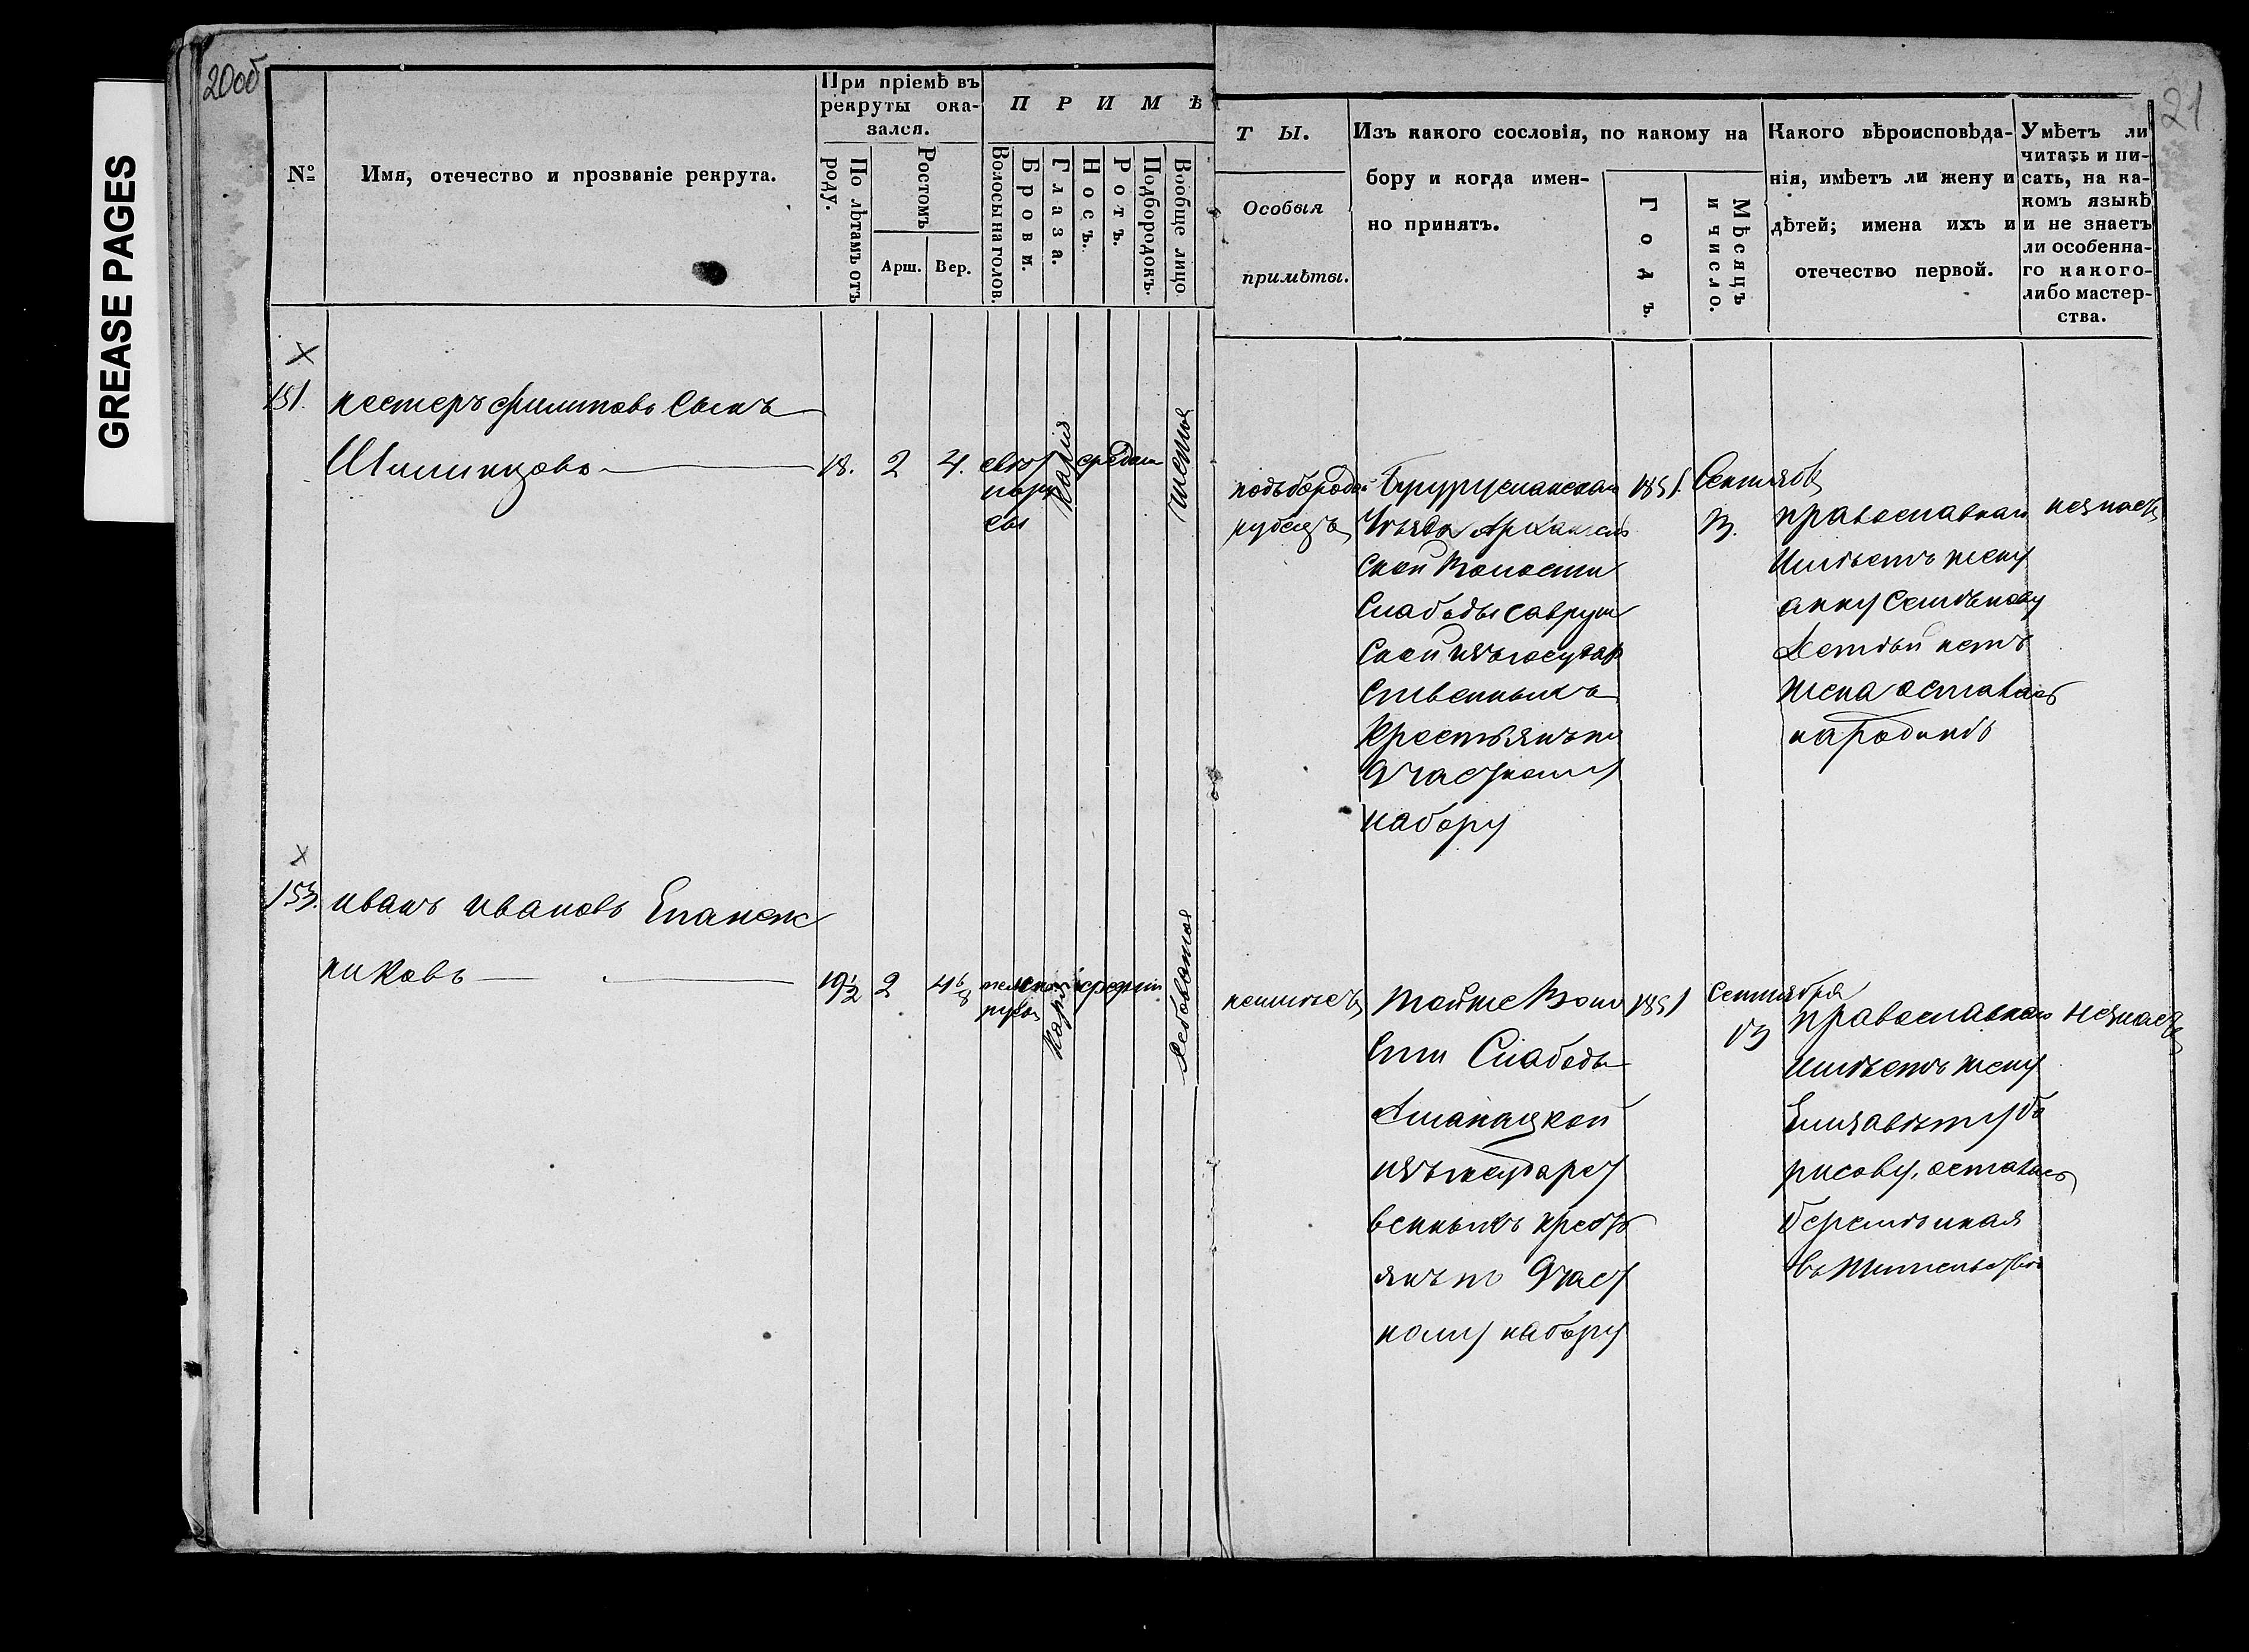 GREASE PAGES
20об
21
№
Имя, отечество и прозваніе рекрута.
При пріемѣ въ
рекруты ока-
зался.
По лѣтамъ отъ
роду.
Ростомъ
Арш.
Вер.
ПРИМѢ
Волосы на голов.
Брови.
Глаза.
Носъ.
Ротъ.
Подбородокъ.
Вообще лицо.
ТЫ.
Особыя
примѣты.
Изъ какого сословія, по какому на
бору и когда имен-
но принятъ.
Годъ.
Мѣсяцъ
и число.
Какого вѣроисповѣда-
нія, имѣетъ ли жену и
дѣтей; имена ихъ и
отечество первой.
Умѣетъ ли
читать и пи-
сать, на ка-
комъ языкѣ
и не знаетъ
ли особенна-
го какого-
либо мастер-
ства.
151.
нестеръ филиповъ сынъ
18. 2 4.
карія
средни
подъбородой
рубецъ
Бугурусланскаго
Уѣзда Архангель
ской Волости
Слабоды Савруш
ской изъ государ
ственныхъ
Крестьянъ по
9 частному
набору
1851.
Сентября
13.
православнаго
Имѣетъ жену
анну Семѣнову
Детѣй нетъ
жена осталась
народинѣ
незнаетъ
153.
иванъ ивановъ Епанеж
никовъ
19 1/2 2 4 6/8
темно
русыя
Карія
средніи
Ребоватая
неимѣетъ
тойже Воло
сти Слабоды
изъ государст
венныхъ крестъ
янъ по 9 част
ному набору
1851
Сентября
13
православнаго
имѣетъ жену
Елизавѣту бо
рисову, осталась
беремѣнная
въ жительствѣ
незнаетъ